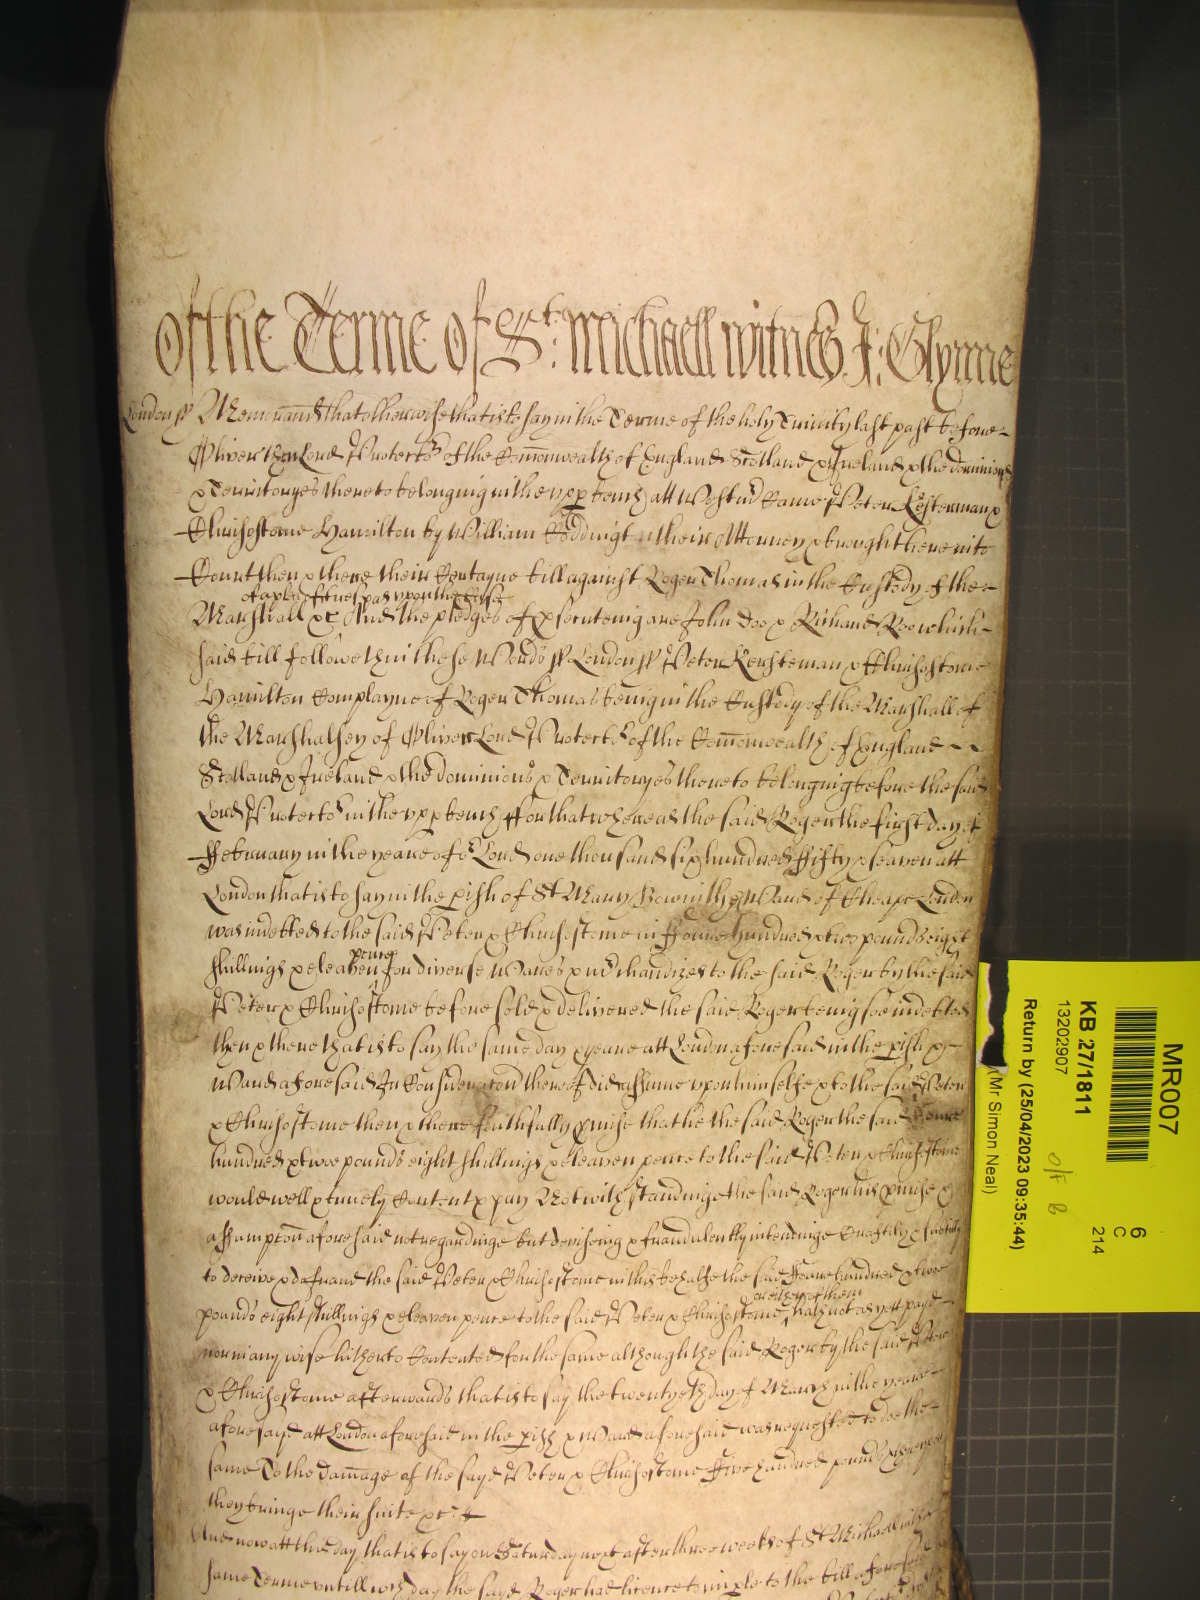 Of the Terme of St: Michaell witnes J: Glynne
London ss Memorand that otherwise that is to say in the Terme of the holy Trinity last past before
Oliver then Lord Protector of the Comonwealth of England Scotland & Ireland & the dominions
& Territoryes thereto belonging in the upp bench att Westm Came Peter Kersteman &
Chrisostome Hamilton by William Coddingt their Attorney & brought here into
Court then & there their Certayne bill against Roger Thomas in the Custody of the
of a plea of trespas upon the Case
Marshall &c And the pledges of prsecuteing are John Doo & Richard Roo which
said bill followeth in these Words ss London ss Peter Kersteman & Chrisostome
Hamilton Complayne of Roger Thomas being in the Custody of the Marshall of
the Marshalsey of Oliver Lord Protector of the Comonwealth of England
Scotland & Ireland & the dominions & Territoryes thereto belonging before the said
Lord Protector in the upp bench ffor that whereas the said Roger the first day of
ffebruary in the yeare of or Lord one thousand six hundred ffifty & seaven att
London that is to say in the pish of St Mary Bow in the Ward of Cheape London
was indebted to the said Peter & Chrisostome in ffoure hundred & two pounds eight
shillings & eleaven pence for diverse Wares & mrchandizes to the said Roger by the said
Peter & Chrisostome before sold & delivered the said Roger being soe indebted
then & there that is to say the same day & yeare att London aforesaid in the pish &
Ward aforesaid In Consideracon thereof did assume upon himselfe & to the said Peter
& Chrisostome then & there faithfully pmise that he the said Roger the said ffoure
hundred & twoe pounds eight shillings & eleaven pence to the said Peter & Chrisostome
would well & truely Content & pay Notwithstandinge the said Roger his pmise &
assumpcon aforesaid not regardinge but deviseing & fraudulently intendinge Craftily & subtily
to deceive & defraud the said Peter & Chrisostome in this behalfe the said ffoure hundred & twoe
or either of them
pounds eight shillings & eleaven pence to the said Peter & Chrisostome hath not as yett payd
nor in any wise hitherto Contented for the same although the said Roger by the said Peter
& Chrisostome afterwards that is to say the twentyeth day of March in the yeare
aforesayd att London aforesaid in the pish & Ward aforesaid was requested to doe the
same To the damage of the sayd Peter & Chrisostome ffive hundred pounds & thereupon
they bringe their suite &c
And now att this day that is to say on Saturday next after three weekes of St Michaell in the
same Terme untill wch day the sayd Roger had licence to imple to the bill aforesaid
MR007
6
C
214
KB 27/1811
13202907
O/F B
Return by (25/04/2023 09:35:44)
(Mr Simon Neal)